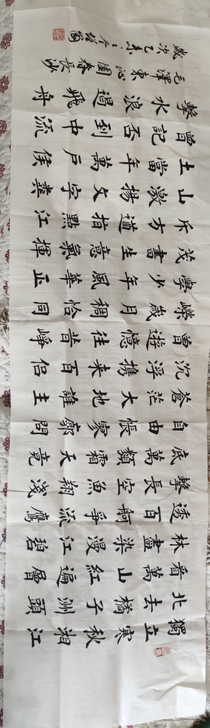 獨立寒秋湘江
北去橘子洲頭
看萬山紅遍層
林盡染漫江碧
透百舸爭流鷹
擊長空魚翔淺
底萬類霜天競
自由悵寥廓問
蒼茫大地誰主
沉浮攜來百侶
曾遊憶往昔崢
嶸歲月稠恰同
學少年風華正
茂書生意氣揮
斥方遒指點江
山激揚文字糞
土當年萬戶侯
曾記否到中流
擊水浪遏飛舟
毛澤東沁園春長沙
歲次乙亥